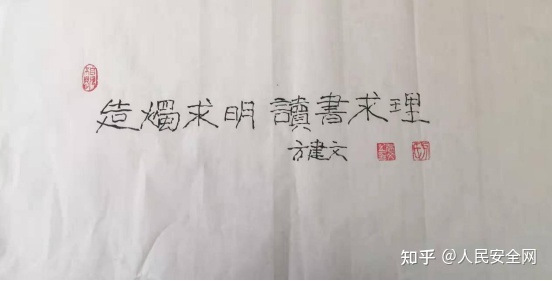 造燭求明 讀書求理
方建文
知乎 @人民安全网